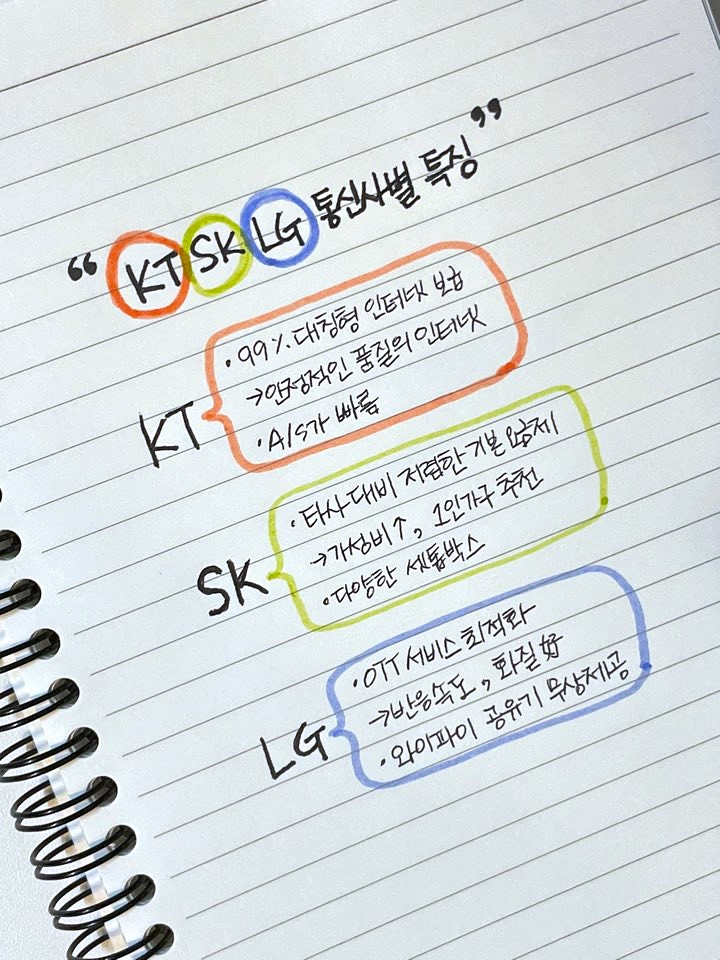 “ KT SK LG 통신사별 특징 ”
KT
• 99% 대칭형 인터넷 보급
→안정적인 품질의 인터넷
• A/S가 빠름
SK
• 타사 대비 저렴한 기본 요금제
→가성비↑, 1인가구 추천
• 다양한 셋톱박스
LG
• OTT 서비스 최적화
→반응속도, 화질 好
• 와이파이 공유기 무상제공